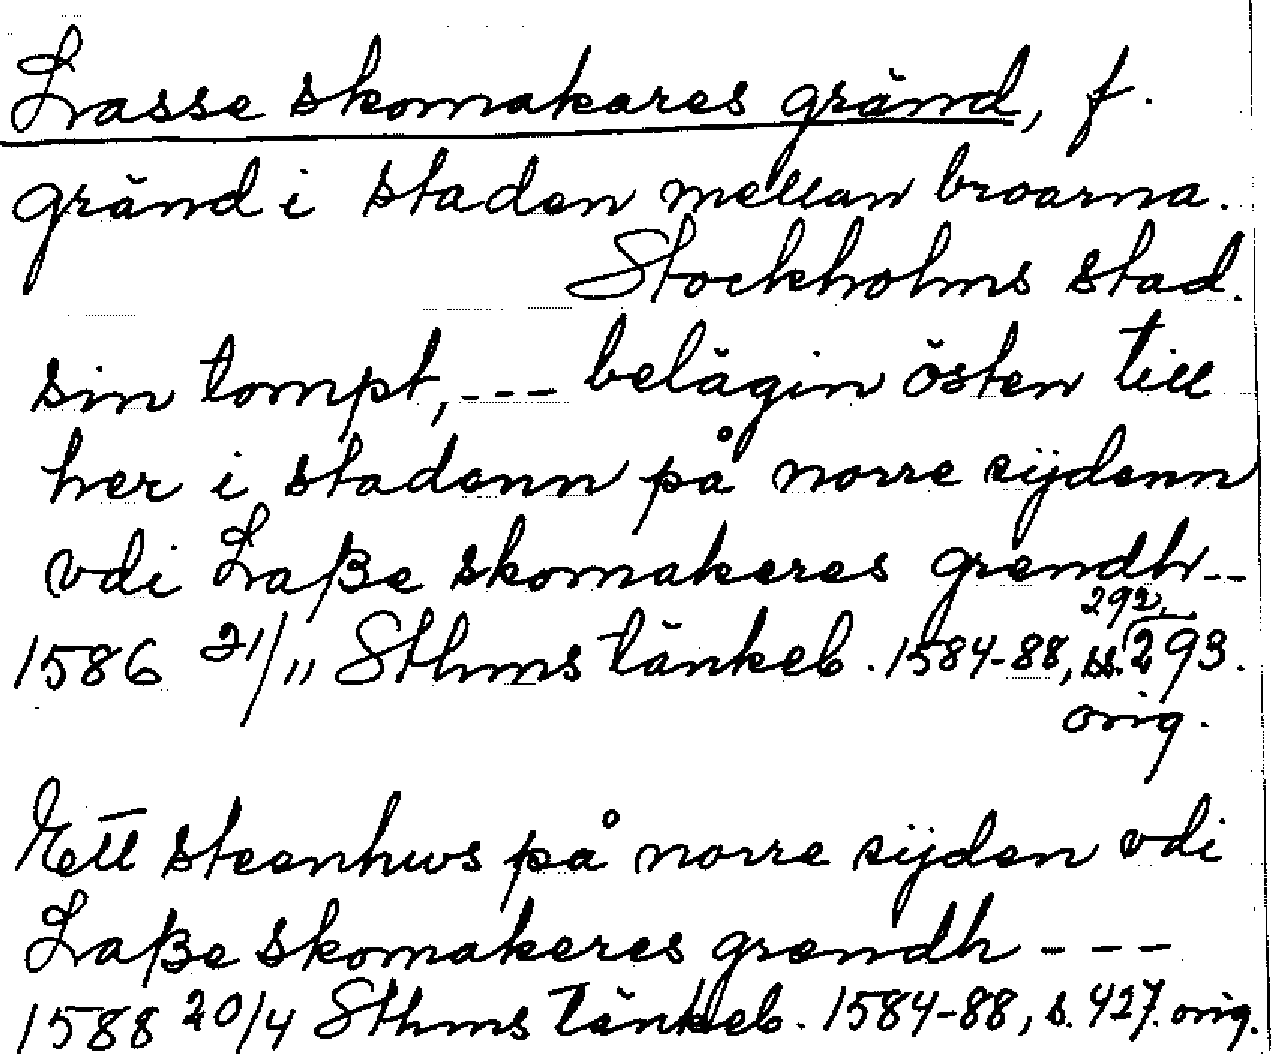 Lasse skomakares gränd, f.
gränd i staden mellan broarna.
Stockholms stad.
sin tompt, --- belägin östen till
her i stadenn på norre sijdenn
vdi Laße skomakeres grendh--
292,
1586 21/11 Sthms tänkeb. 1584-88, ss. 293.
orig.
Ett steenhws på norre sijden vdi
Laße skomakeres grendh ---
1588 20/4 Sthms tänkeb. 1584-88, s. 427. orig.